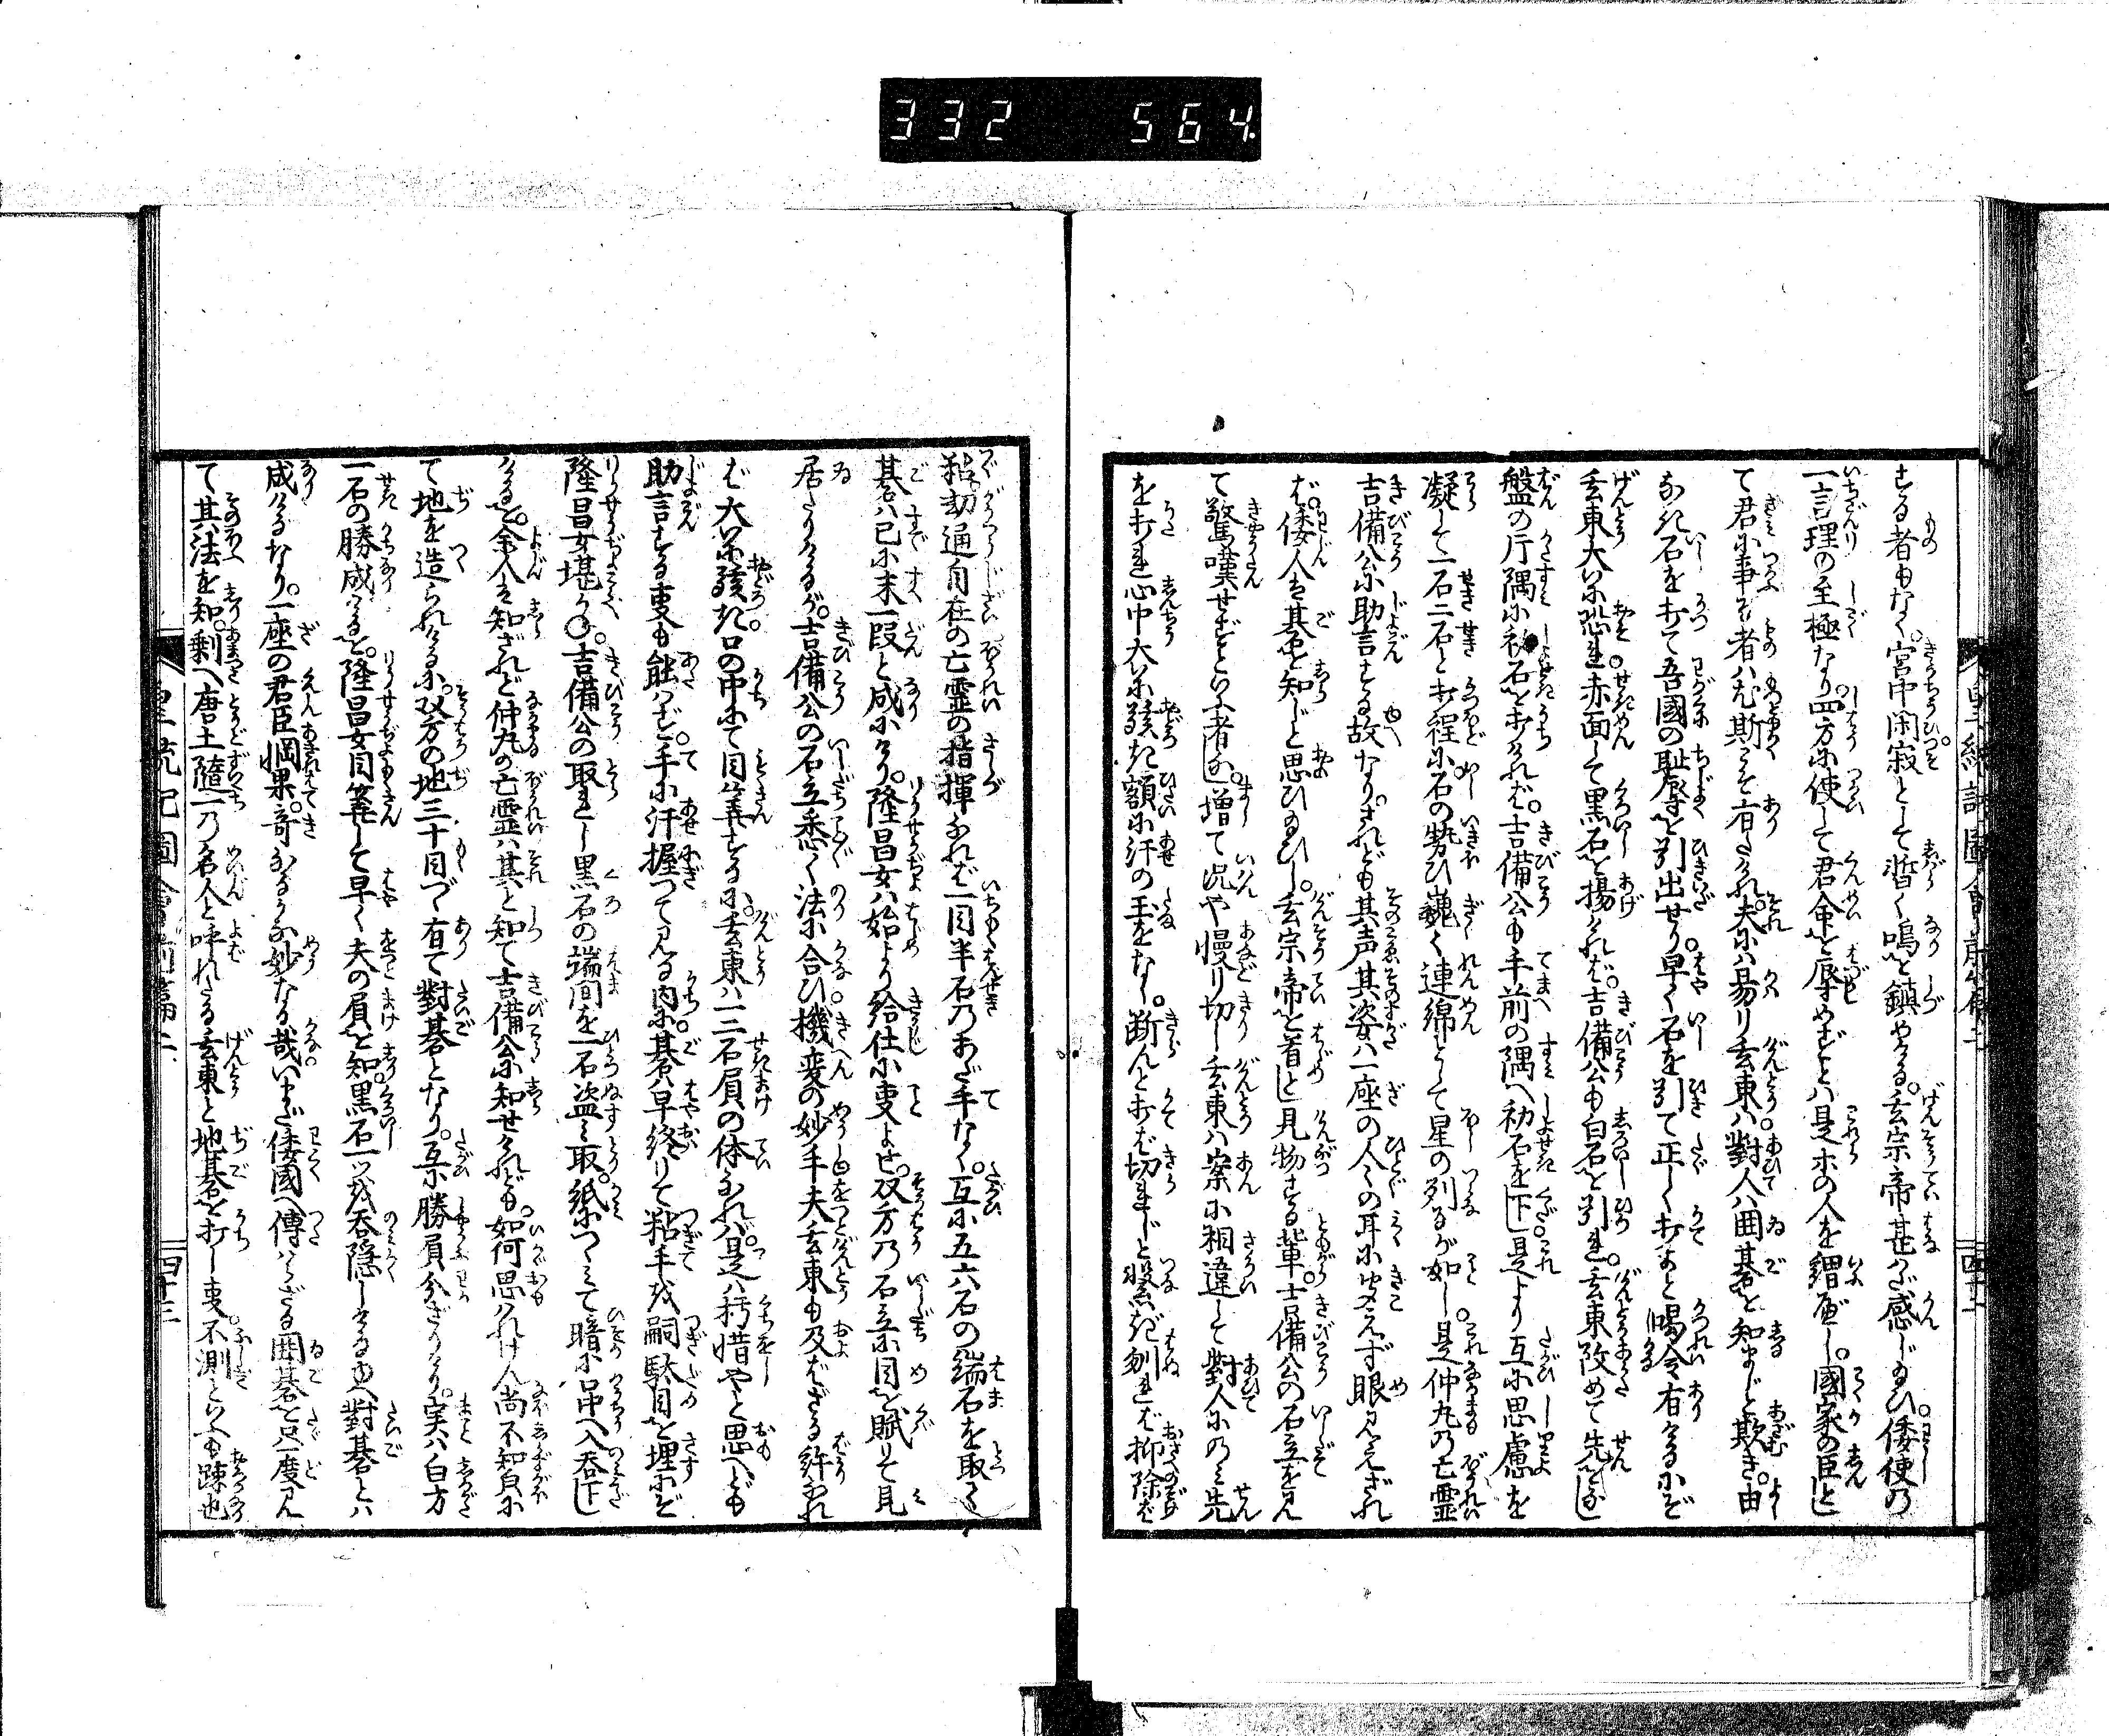 332 564
する者もなく。宮中閑寂として暫く鳴を鎮やる。玄宗帝甚だ感じ給ひ倭使の
一言理の至極なり。四方に使して君命を辱めずとは是ホの人を謂べし。國家の臣として
て君に事る者はむ斯こそ有たけれ。夫には易り玄東は對人は囲碁を知まじと欺き。由
なき石を打て吾國の耻辱を引出せり。早く石を引て正しく打よと喝令有けるにぞ
玄東大に恐れ赤面して黒石を揚ければ。吉備公も白石を引れ。玄東改めて先をし
盤の片隅に初石を打ければ。吉備公も手前の隅へ初石を下し是より互に思慮を
凝して一石二石と打程に石の勢ひ巍く連綿として星の列るが如し。是仲丸の亡霊
吉備公に助言する故なり。されども其声其姿は一座の人々の耳に聞えず眼に見えざれ
ば。倭人は其碁を知じと思ひゐひし。玄宗帝を首とし見物する輩。吉備公の石立を見
て驚嘆せずといふ者なし。増て况や慢り切し玄東は案に相違して對人にのミ先
を打れ心中大に駭き額に汗の玉をなし。断んと打ば切まじと繋ぎ刎れば抑除ば
粘劫通自在の亡霊の指揮なれば一目半石のあだ手なく。互に五六石の端石を取て
碁は已に末一段と成にけり。隆昌女は始より給仕に事よせ。双方の石立に目を賦りて見
居たりけるが。吉備公の石立悉く法に合ひ機変の妙手夫玄東も及ばざる許なれ
ば大に駭き口の中にて目筭するに。玄東は一二石負の体なれば。是は朽惜やと思へども
助言する事も能はず。手に汗握つて見る内に。碁は早終りて粘手或嗣駄目を埋にぞ
隆昌女堪かね。吉備公の取れし黒石の端間を一石盗ミ取。紙につゝミて暗に口中へ入呑下し
けるを。余人は知ざれど仲丸の亡霊は其と知て吉備公に知せけれども。如何思はれけん尚不知負に
て地を造られけるに。双方の地三十目づゝ有て對碁となり。互に勝負分ざりけり。実は白方
一石の勝成けるを。隆昌女目筭して早く夫の負を知。黒石一ッ或呑隠しけるゆへ對碁とは
成けるなり。一座の君臣惘果。奇なるかな妙なる哉いまだ倭國へ傳はらざる囲碁を只一度見
て其法を知。剰へ唐土随一の名人と呼れたる玄東と地碁を打し事。不測といふも疎也
皇統記圖會前篇二
四十二
四十三